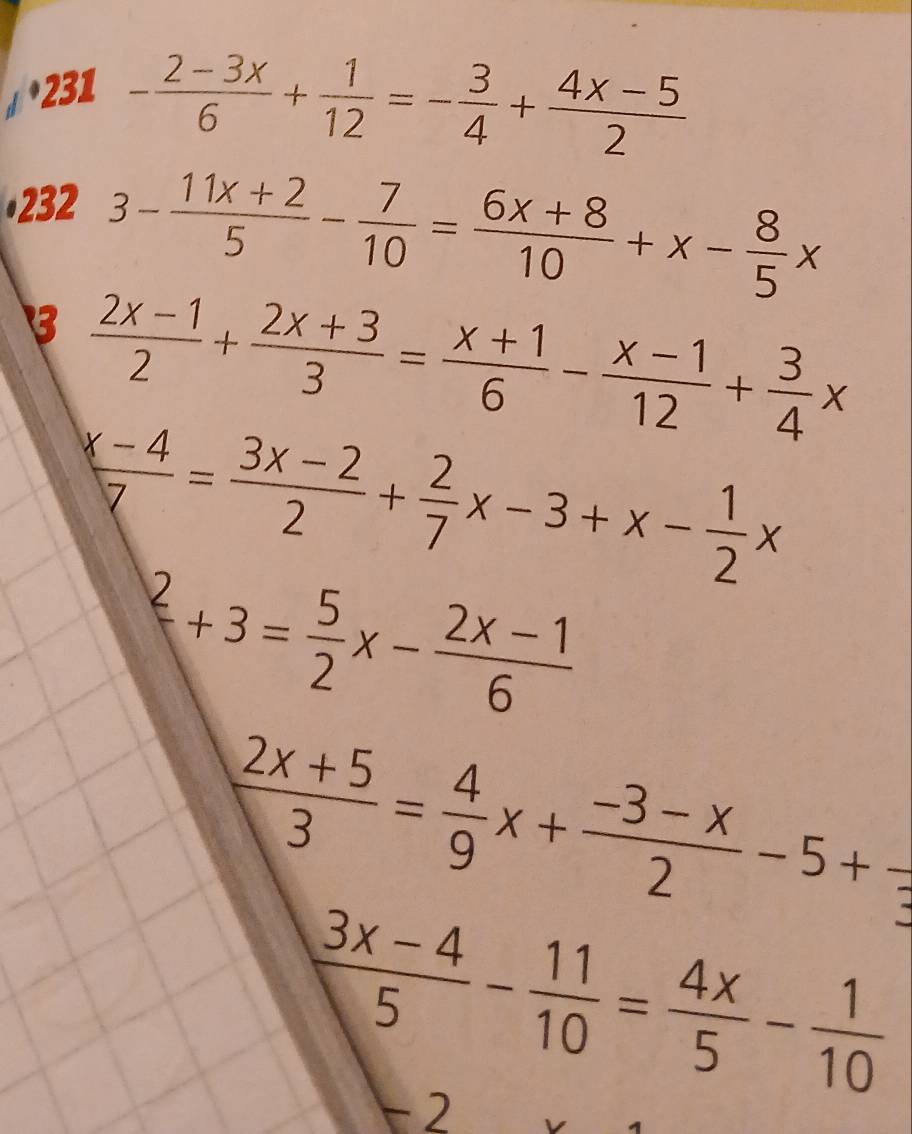 •231 -\frac{2-3x}{6} + \frac{1}{12} = -\frac{3}{4} + \frac{4x-5}{2}
•232 3 - \frac{11x+2}{5} - \frac{7}{10} = \frac{6x+8}{10} + x - \frac{8}{5}x
33 \frac{2x-1}{2} + \frac{2x+3}{3} = \frac{x+1}{6} - \frac{x-1}{12} + \frac{3}{4}x
\frac{x-4}{7} = \frac{3x-2}{2} + \frac{2}{7}x - 3 + x - \frac{1}{2}x
2 + 3 = \frac{5}{2}x - \frac{2x-1}{6}
\frac{2x+5}{3} = \frac{4}{9}x + \frac{-3-x}{2} - 5 +
\frac{3x-4}{5} - \frac{11}{10} = \frac{4x}{5} - \frac{1}{10}
-2